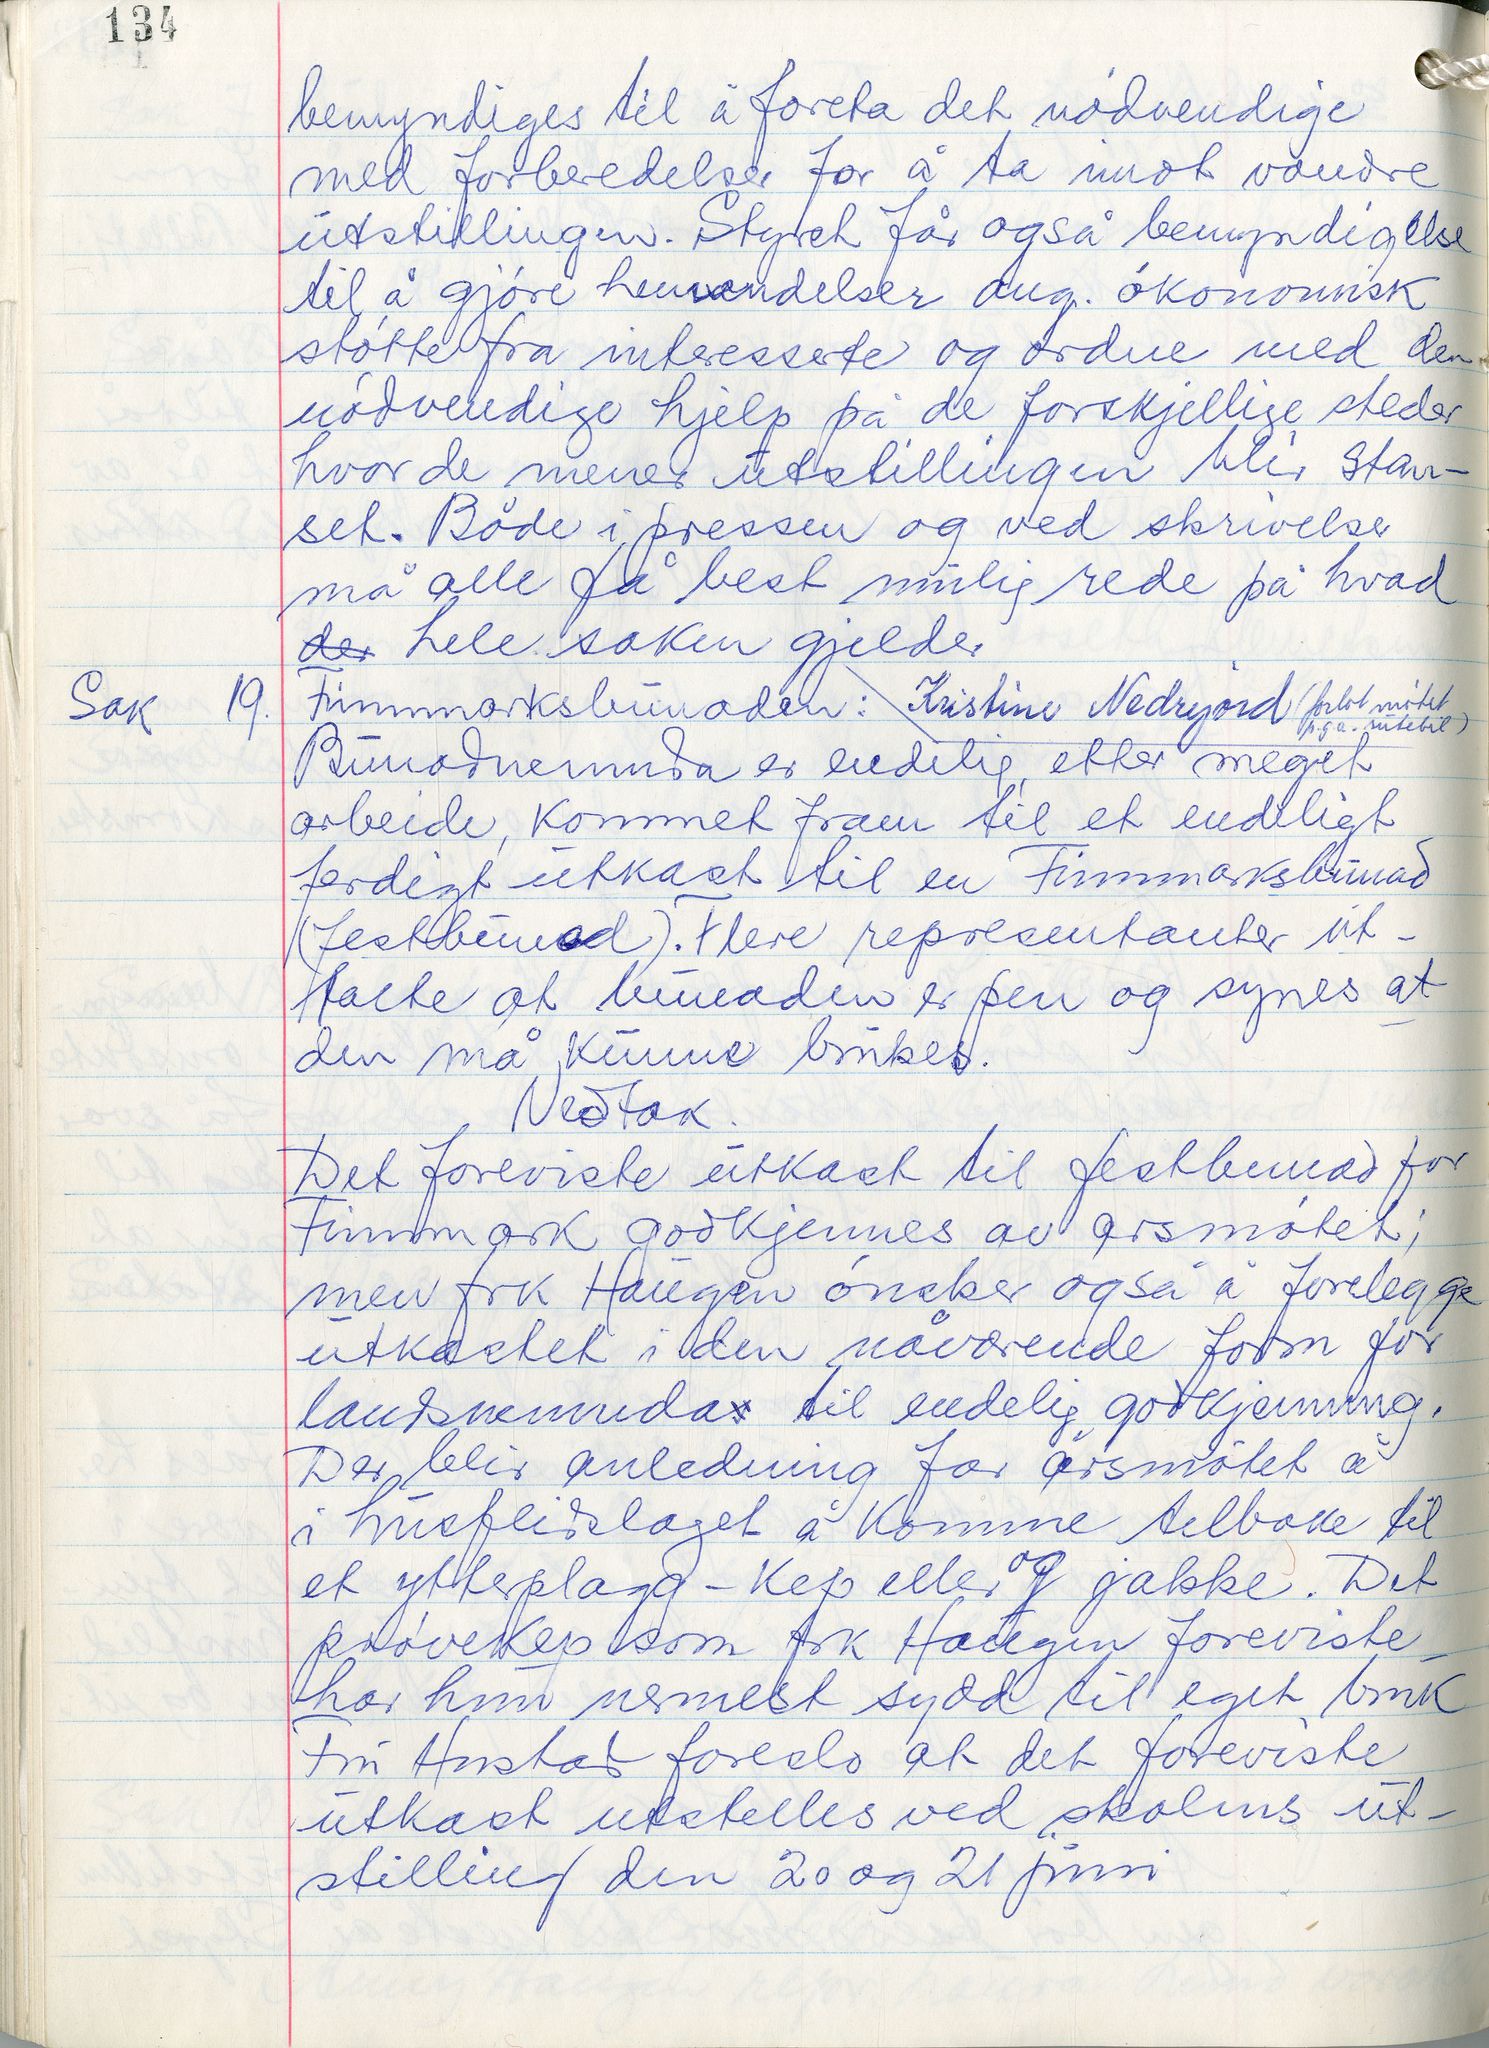 134
bemyndiges til å foreta det nödvendige
med forberedelser for å ta imot vandre
utstillingen. Styret får også bemyndigelse
til å gjöre henvendelser ang. ökonomisk
stötte fra interesserte og ordne med den
nödvendige hjelp på de forskjellige steder
hvor de mener utstillingen blir stan-
set. Både i pressen og ved skrivelser
må alle få best mulig rede på hvad
der hele saken gjelder
Sak 19. Finnmarksbunaden: Kristine Nedrejord (forlot mötet
p.g.a. rutebil)
Bunadnemnda er endelig, etter meget
arbeide, kommet fram til et endeligt
ferdigt utkast til en Finnmarksbunad
(festbunad). Flere representanter ut-
talte at bunaden er pen og synes at
den må kunne brukes.
Vedtak.
Det foreviste utkast til festbunad for
Finnmark godkjennes av årsmötet;
men frk Haugen önsker også å forelegge
utkastet i den nåværende form for
landsnemnda til endelig godkjenning.
Der blir anledning for årsmötet å
i husflidslaget å komme tilbake til
et ytterplagg - Kep eller og jakke. Det
prövekep som frk Haugen foreviste
har hun nermest sydd til eget bruk
Fru Hustad foreslo at det foreviste
utkast utstilles ved skolens ut-
stilling den 20 og 21 juni